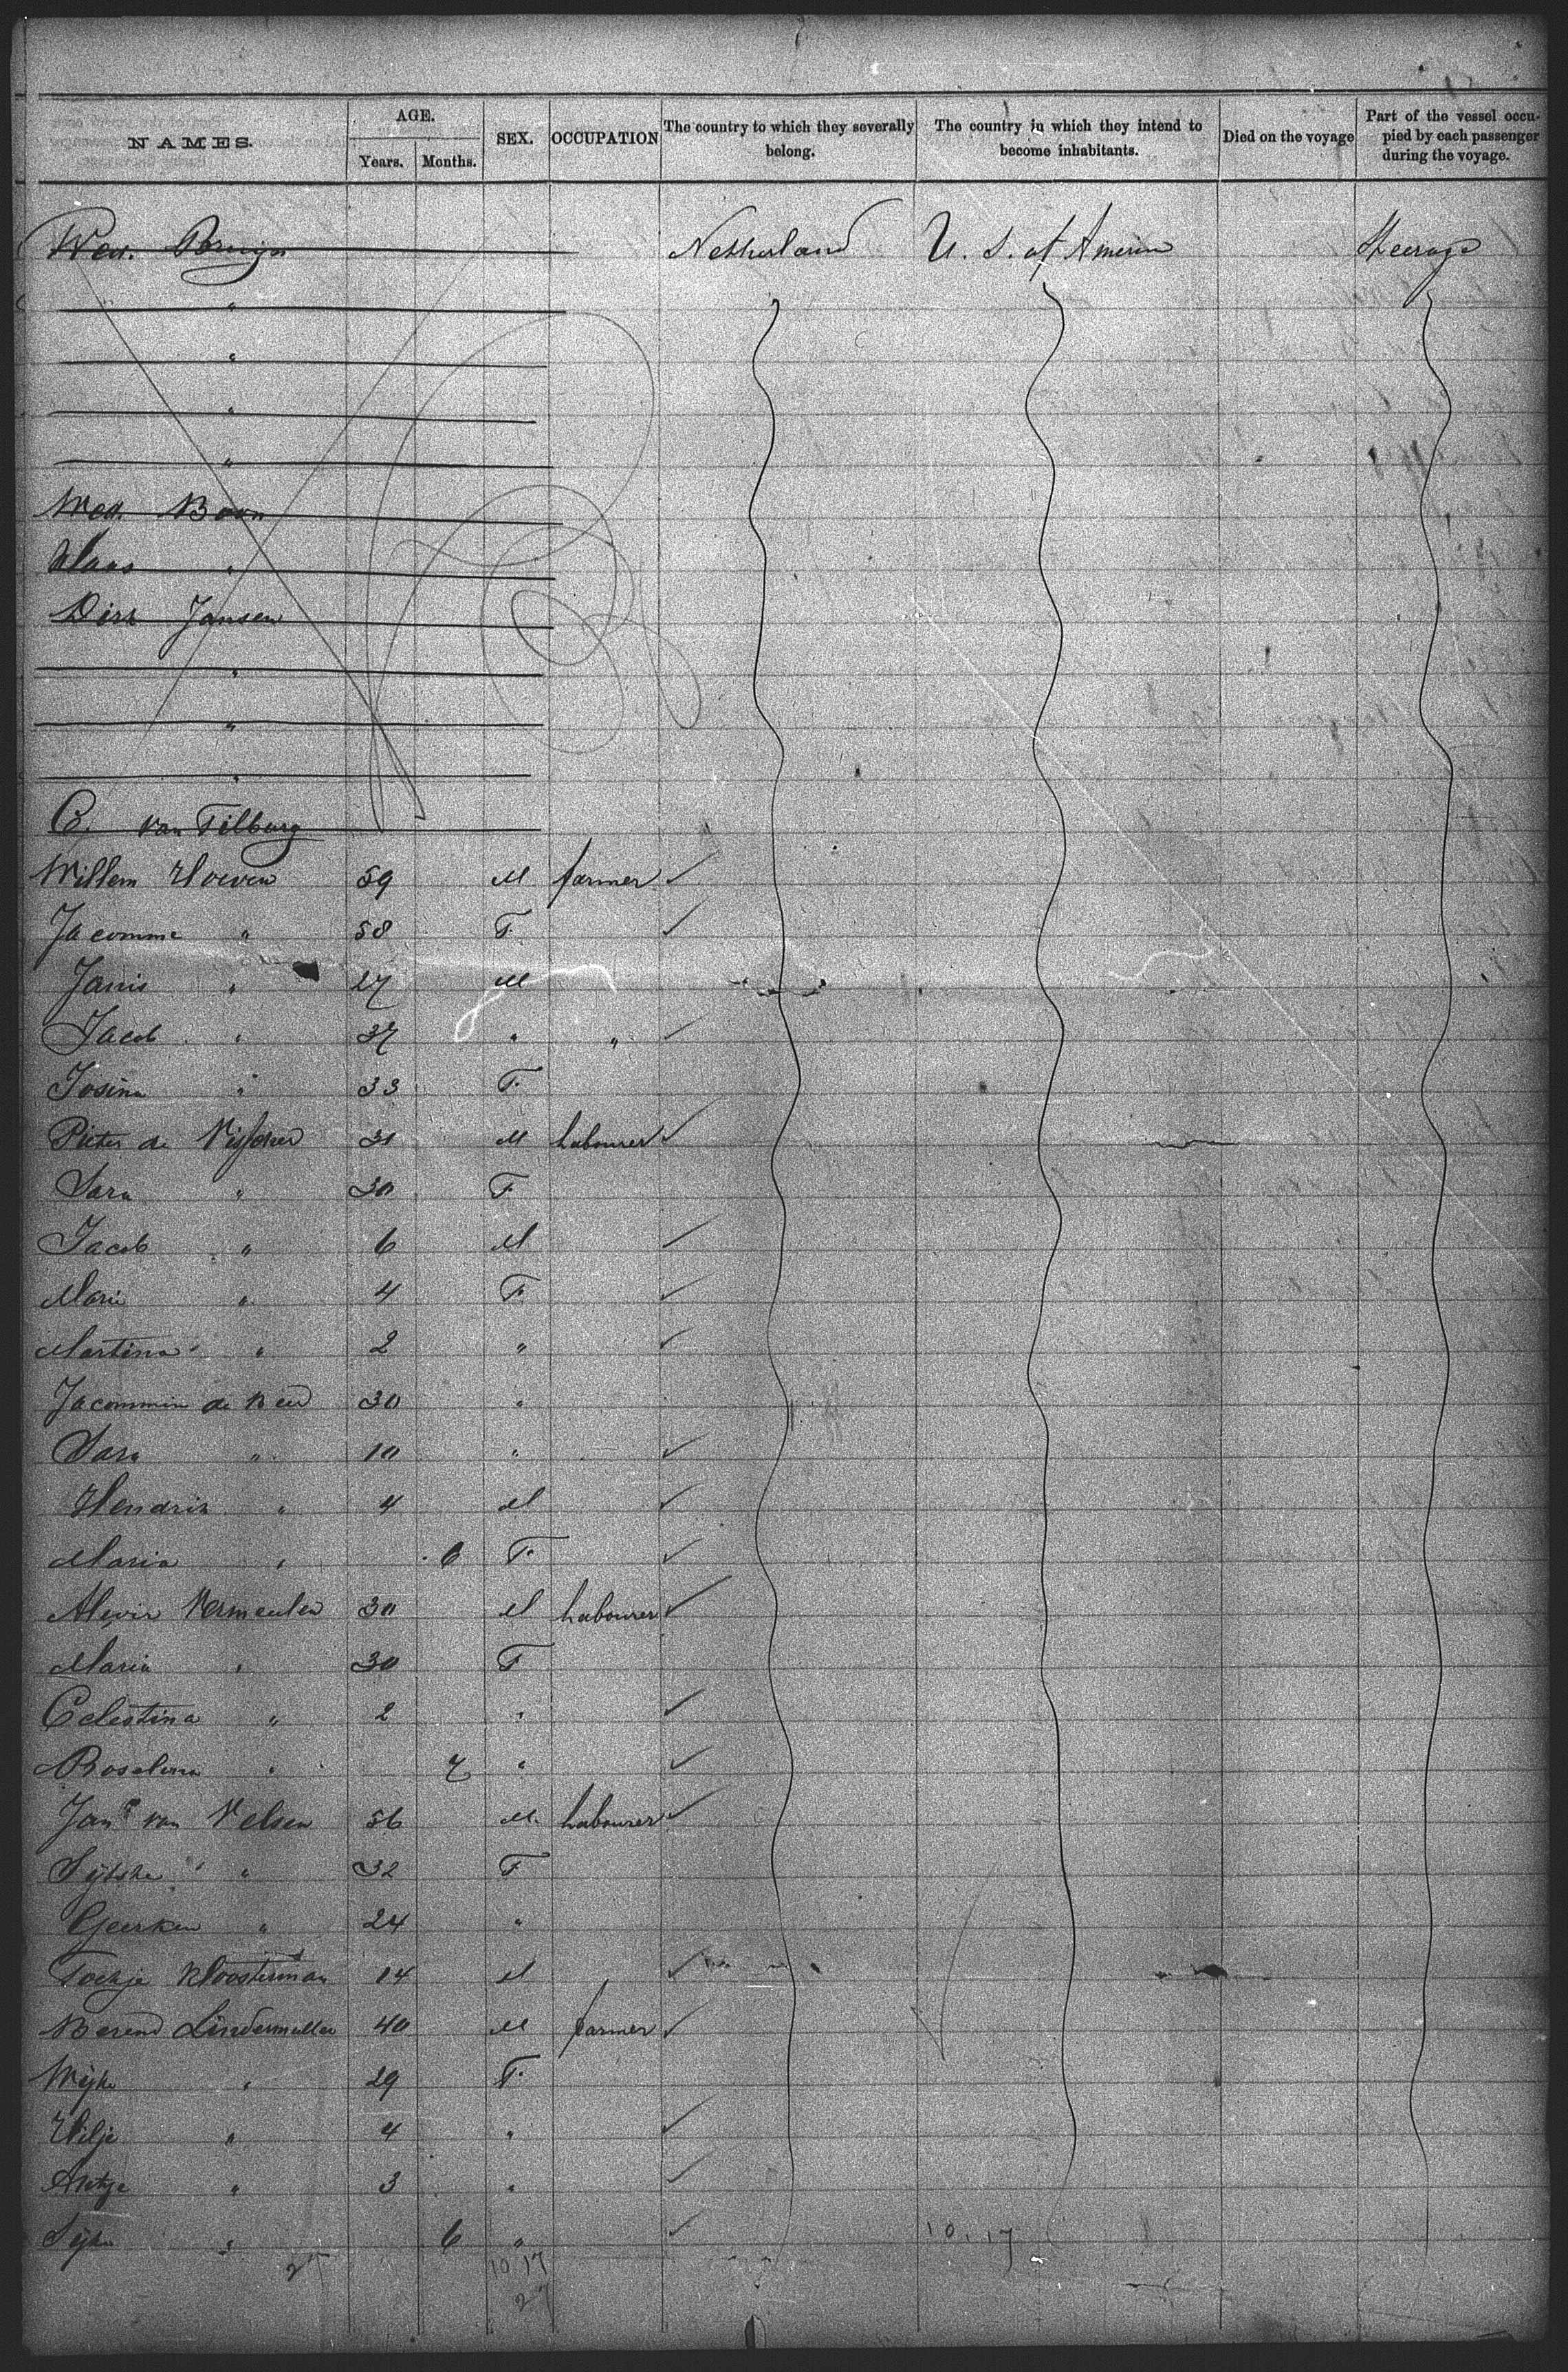 NAMES. AGE. Years. Months. SEX. OCCUPATION The country to which they severally belong. The country in which they intend to become inhabitants. Died on the voyage Part of the vessel occupied by each passenger during the voyage.
Wed. Bruijn Netherland U. S. of America Steerage
"
"
"
"
Wed. Boon
Klaas "
Dirk Jansen
"
"
"
C. van Tilburg
Willem Hoeven 59 M farmer
Jacomme " 58 F.
Janis " 27 M
Jacob " 37 " "
Josina " 33 F.
Pieter de Visscher 31 M Labourer
Sara " 30 F.
Jacob " 6 M
Mari " 4 F.
Martina " 2 "
Jacommin de 30 "
Sara " 10 "
Hendrik " 4 M
Maria " 6 F.
Vermeulen 30 M Labourer
Maria " 30 F
Celestina " 2 "
Roselina " 7 "
Jan van Velsen 56 M. Labourer
Sijtske " 32 F
Geerken " 24 "
Kloosterman 14 M
Berend Lindermuller 40 M farmer
Wijke " 29 F.
Hilje " 4 "
Antje " 3 "
Sijke " 6 " 10.17
10 17
27